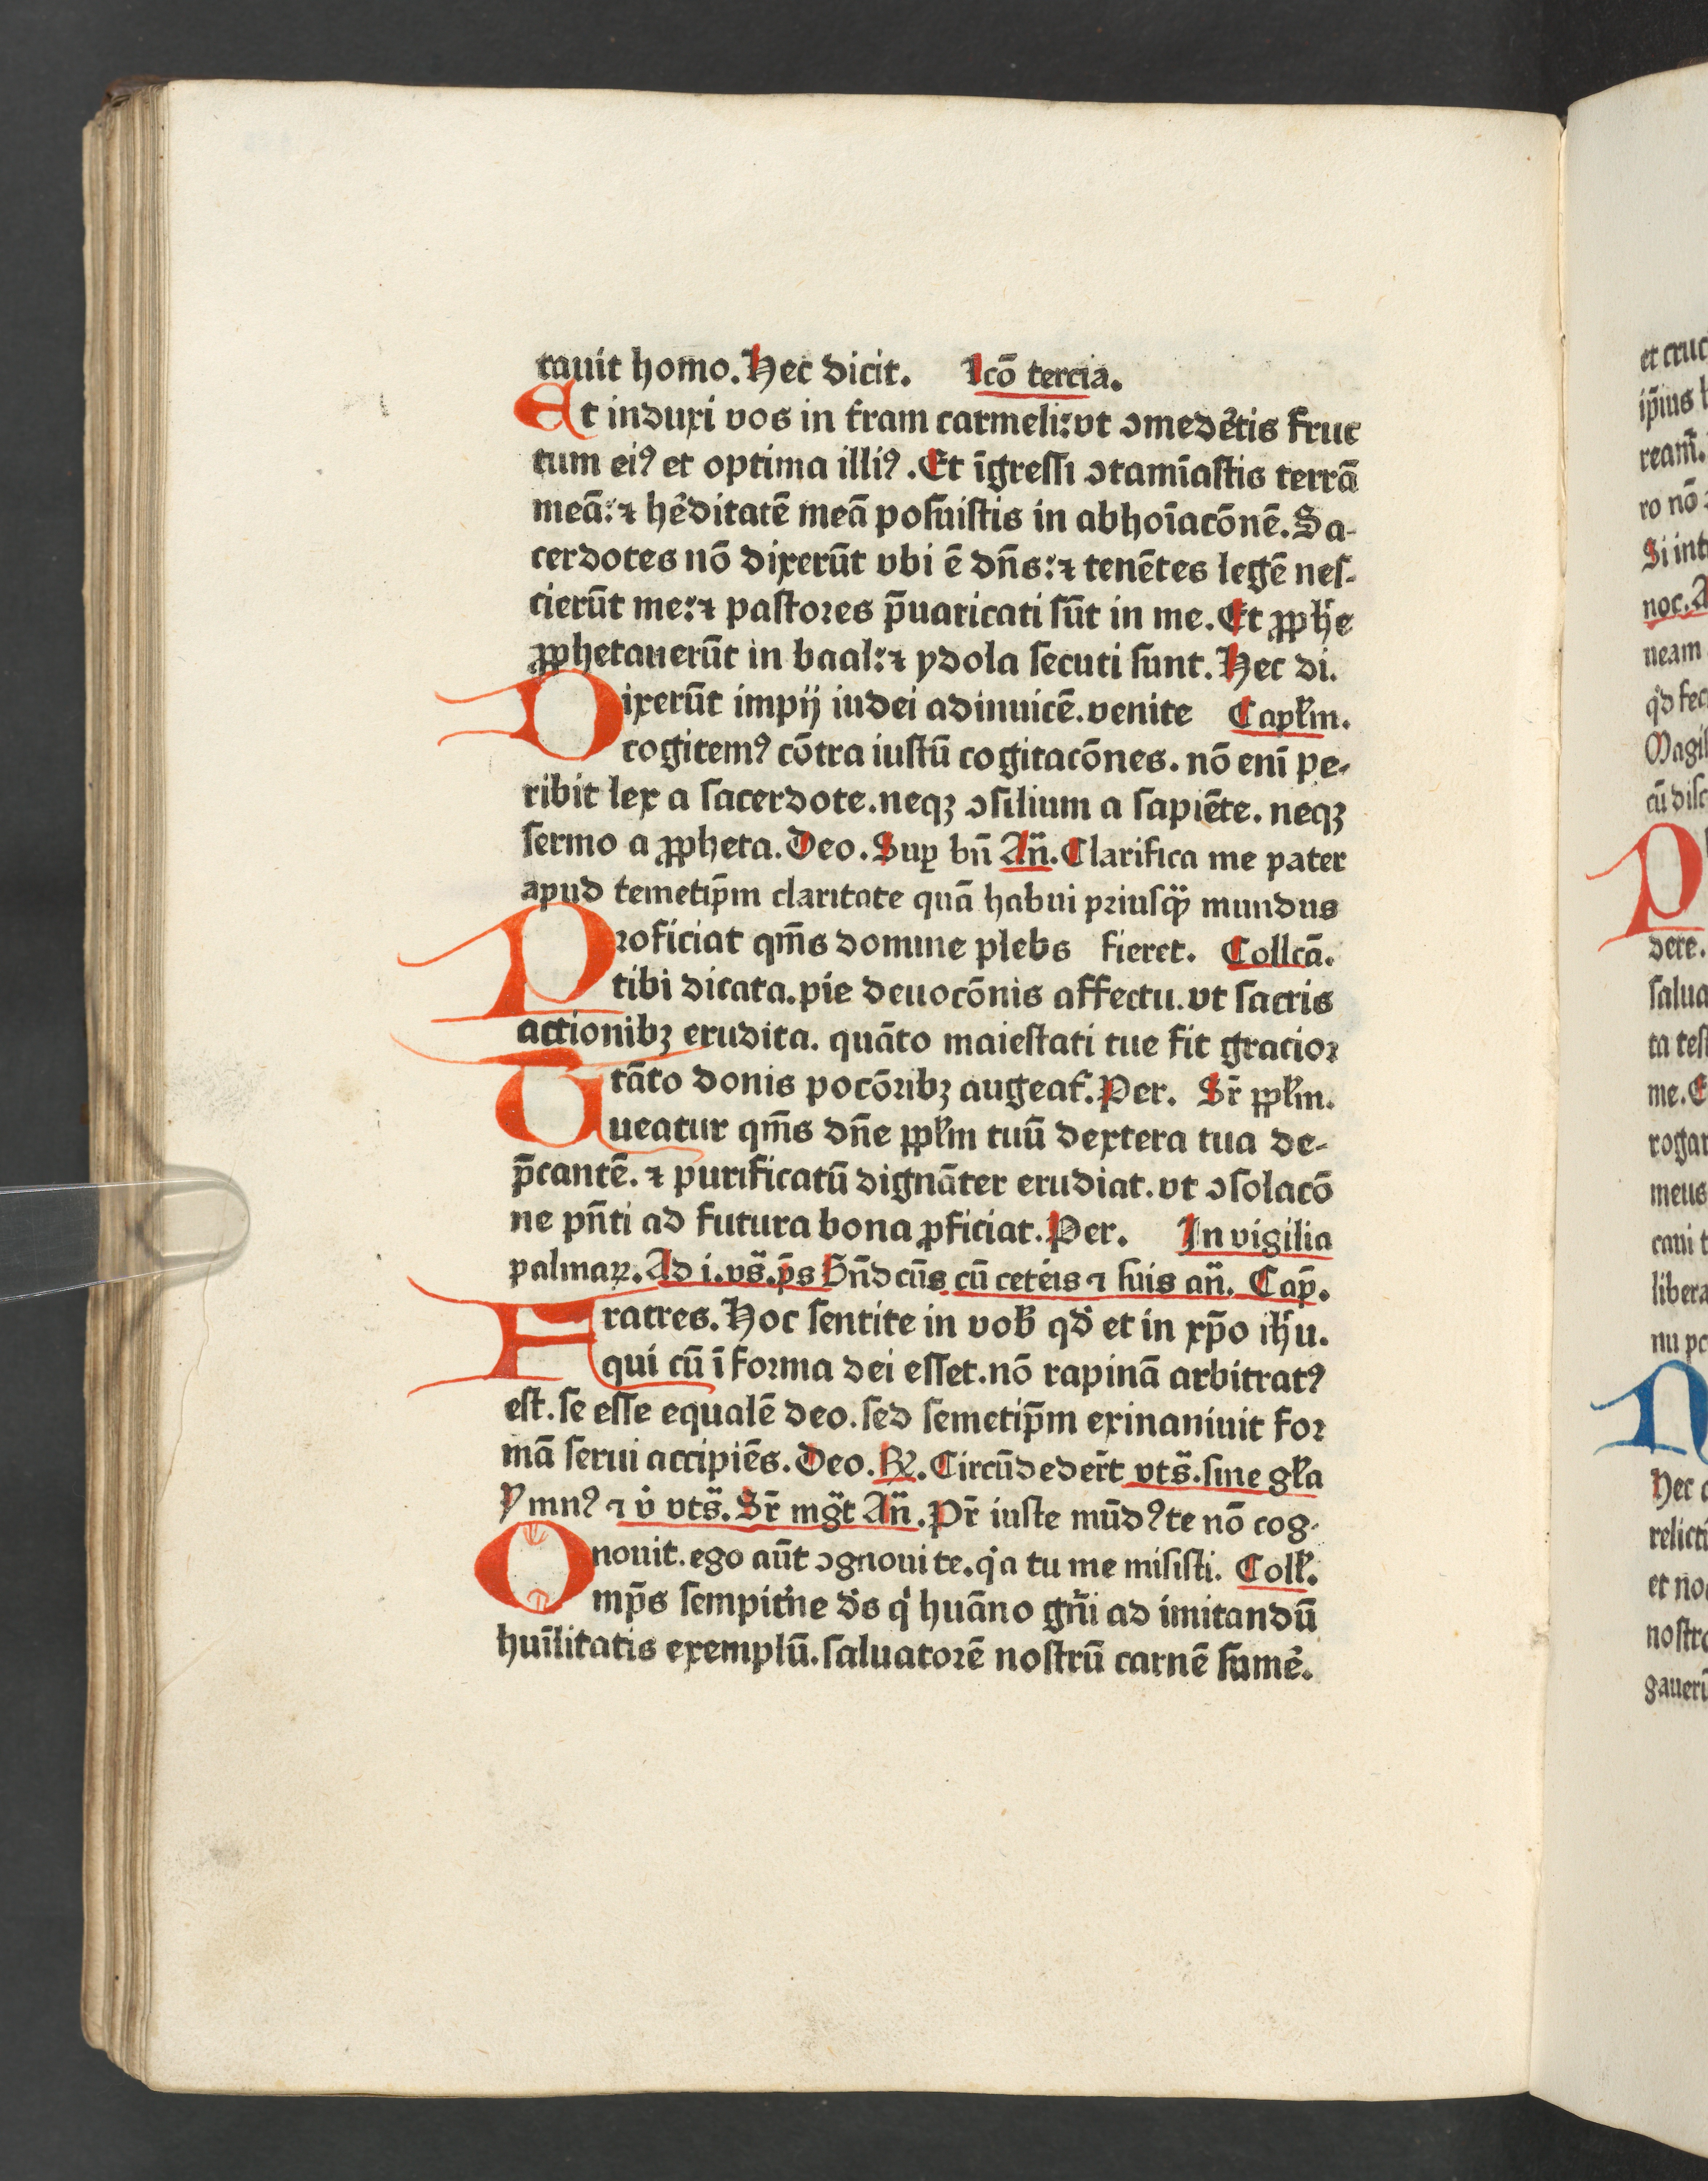 tauit homo. Hec dicit. Lcō tercia.
Et induxi vos in t̄ram carmeli: vt ꝯmedēt̉is fruc
tum eiꝰ et optima illiꝰ. Et īgressi ꝯtamīastis terrā
meā: ⁊ hēditatē meā posuistis in abhoīacōnē. Sa-
cerdotes nō dixerūt vbi ē dn̄s: ⁊ tenētes legē nes-
cierūt me: ⁊ pastores p̄uaricati sūt in me. Et ꝓphe
ꝓphetauerūt in baal: ⁊ ydola secuti sunt. Hec di.
Dixerūt impij iudei adinuicē. venite Capľm.
cogitemꝰ cōtra iustū cogitacōnes. nō enī pe-
ribit lex a sacerdote. neqꝫ ꝯsilium a sapiēte. neqꝫ
sermo a ꝓpheta. Deo. Suꝑ bn̄ An̄. Clarifica me pater
apud temetip̄m claritate quā habui priusqꝫ mundus
Proficiat qm̄s domine plebs fieret. Collcā.
tibi dicata. pie deuocōnis affectu. vt sacris
actionibꝫ erudita. quāto maiestati tue fit gracior
tāto donis pocōribꝫ augeat̄. Per. Sr̄ ppľm.
Tueatur qm̄s dn̄e ppľm tuū dextera tua de-
p̄cantē. ⁊ purificatū dignāter erudiat. vt ꝯsolacō
ne pn̄ti ad futura bona ꝓficiat. Per. In vigilia
palmaꝝ. Ad i. vs̄. p̄s Bn̄dcūs cū cet̉eis ⁊ suis an̄. Cap̄.
Fratres. Hoc sentite in vob̄ qd̄ et in xp̄o ih̄u.
qui cū ī forma dei esset. nō rapinā arbitratꝰ
est. se esse equalē deo. sed semetip̄m exinaniuit for
mā serui accipiēs. Deo. ℟. Circūdeder̄t vts̄. sine gľa
Ymnꝰ ⁊ v̉ vts̄. Sr̄ mḡt An̄. Pr̄ iuste mūdꝰ te nō cog-
nouit. ego aūt ꝯgnoui te. q̉a tu me misisti. Colľ.
Omp̄s sempit̉ne ds̄ q̉ huāno gn̄i ad imitandū
huīlitatis exemplū. saluatorē nostrū carnē sumẻ.